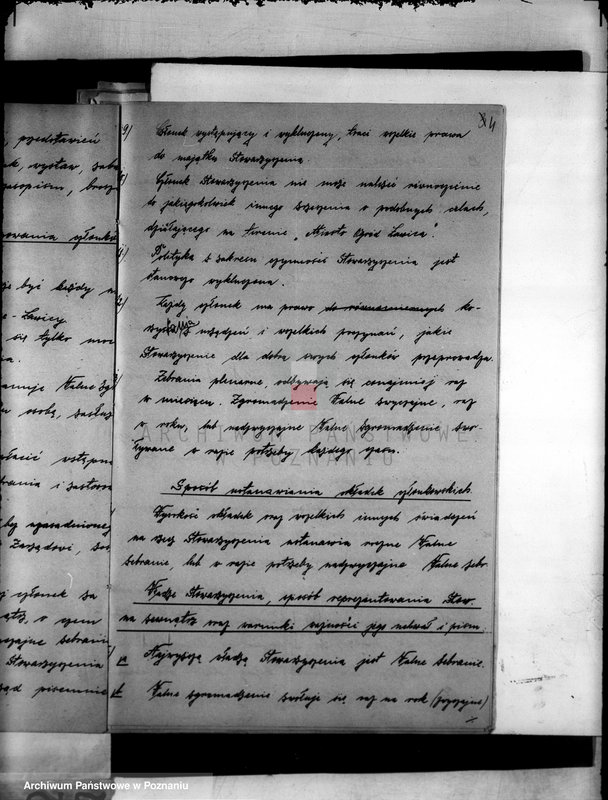 przedstawień
wystaw,
członków
być każdy
- Ławicy
się tylko
Walne
osobę,
wstępne
Zarządowi,
członek
o czem
zebranie
Stowarzyszenia
pisemnie
4
9/ Członek występujący i wykluczony, traci wszelkie prawa
do majątku Stowarzyszenia.
Członek Stowarzyszenia nie może należeć równocześnie
do jakiegokolwiek innego zrzeszenia o podobnych celach,
działającego na terenie "Miasto Ogród Ławica".
Polityka z zakresu czynności Stowarzyszenia jest
wykluczona.
Każdy członek ma prawo do ko-
rzystania z urządzeń i wszelkich poczynań, jakie
Stowarzyszenie dla dobra swych członków przeprowadza.
Zebrania plenarne, odbywają się conajmniej raz
w miesiącu. Zgromadzenie Walne zwyczajne, raz
w roku, lub nadzwyczajne Walne Zgromadzenie zwo-
ływane w razie potrzeby, każdego czasu.
Sposób ustanawiania składek członkowskich.
Wysokość składek oraz wszelkich innych świadczeń
na rzecz Stowarzyszenia ustanawia roczne Walne
zebranie, lub w razie potrzeby nadzwyczajne Walne zebr.
Władze Stowarzyszenia, sposób reprezentowania Stow.
na zewnątrz oraz warunki ważności jego uchwał i pism.
a Najwyższą władzą Stowarzyszenia jest Walne Zebranie.
b Walne zgromadzenie zwołuje się raz na rok (zwyczajne)
ARCHIWUM PAŃSTWOWE
W POZNANIU
Archiwum Państwowe w Poznaniu